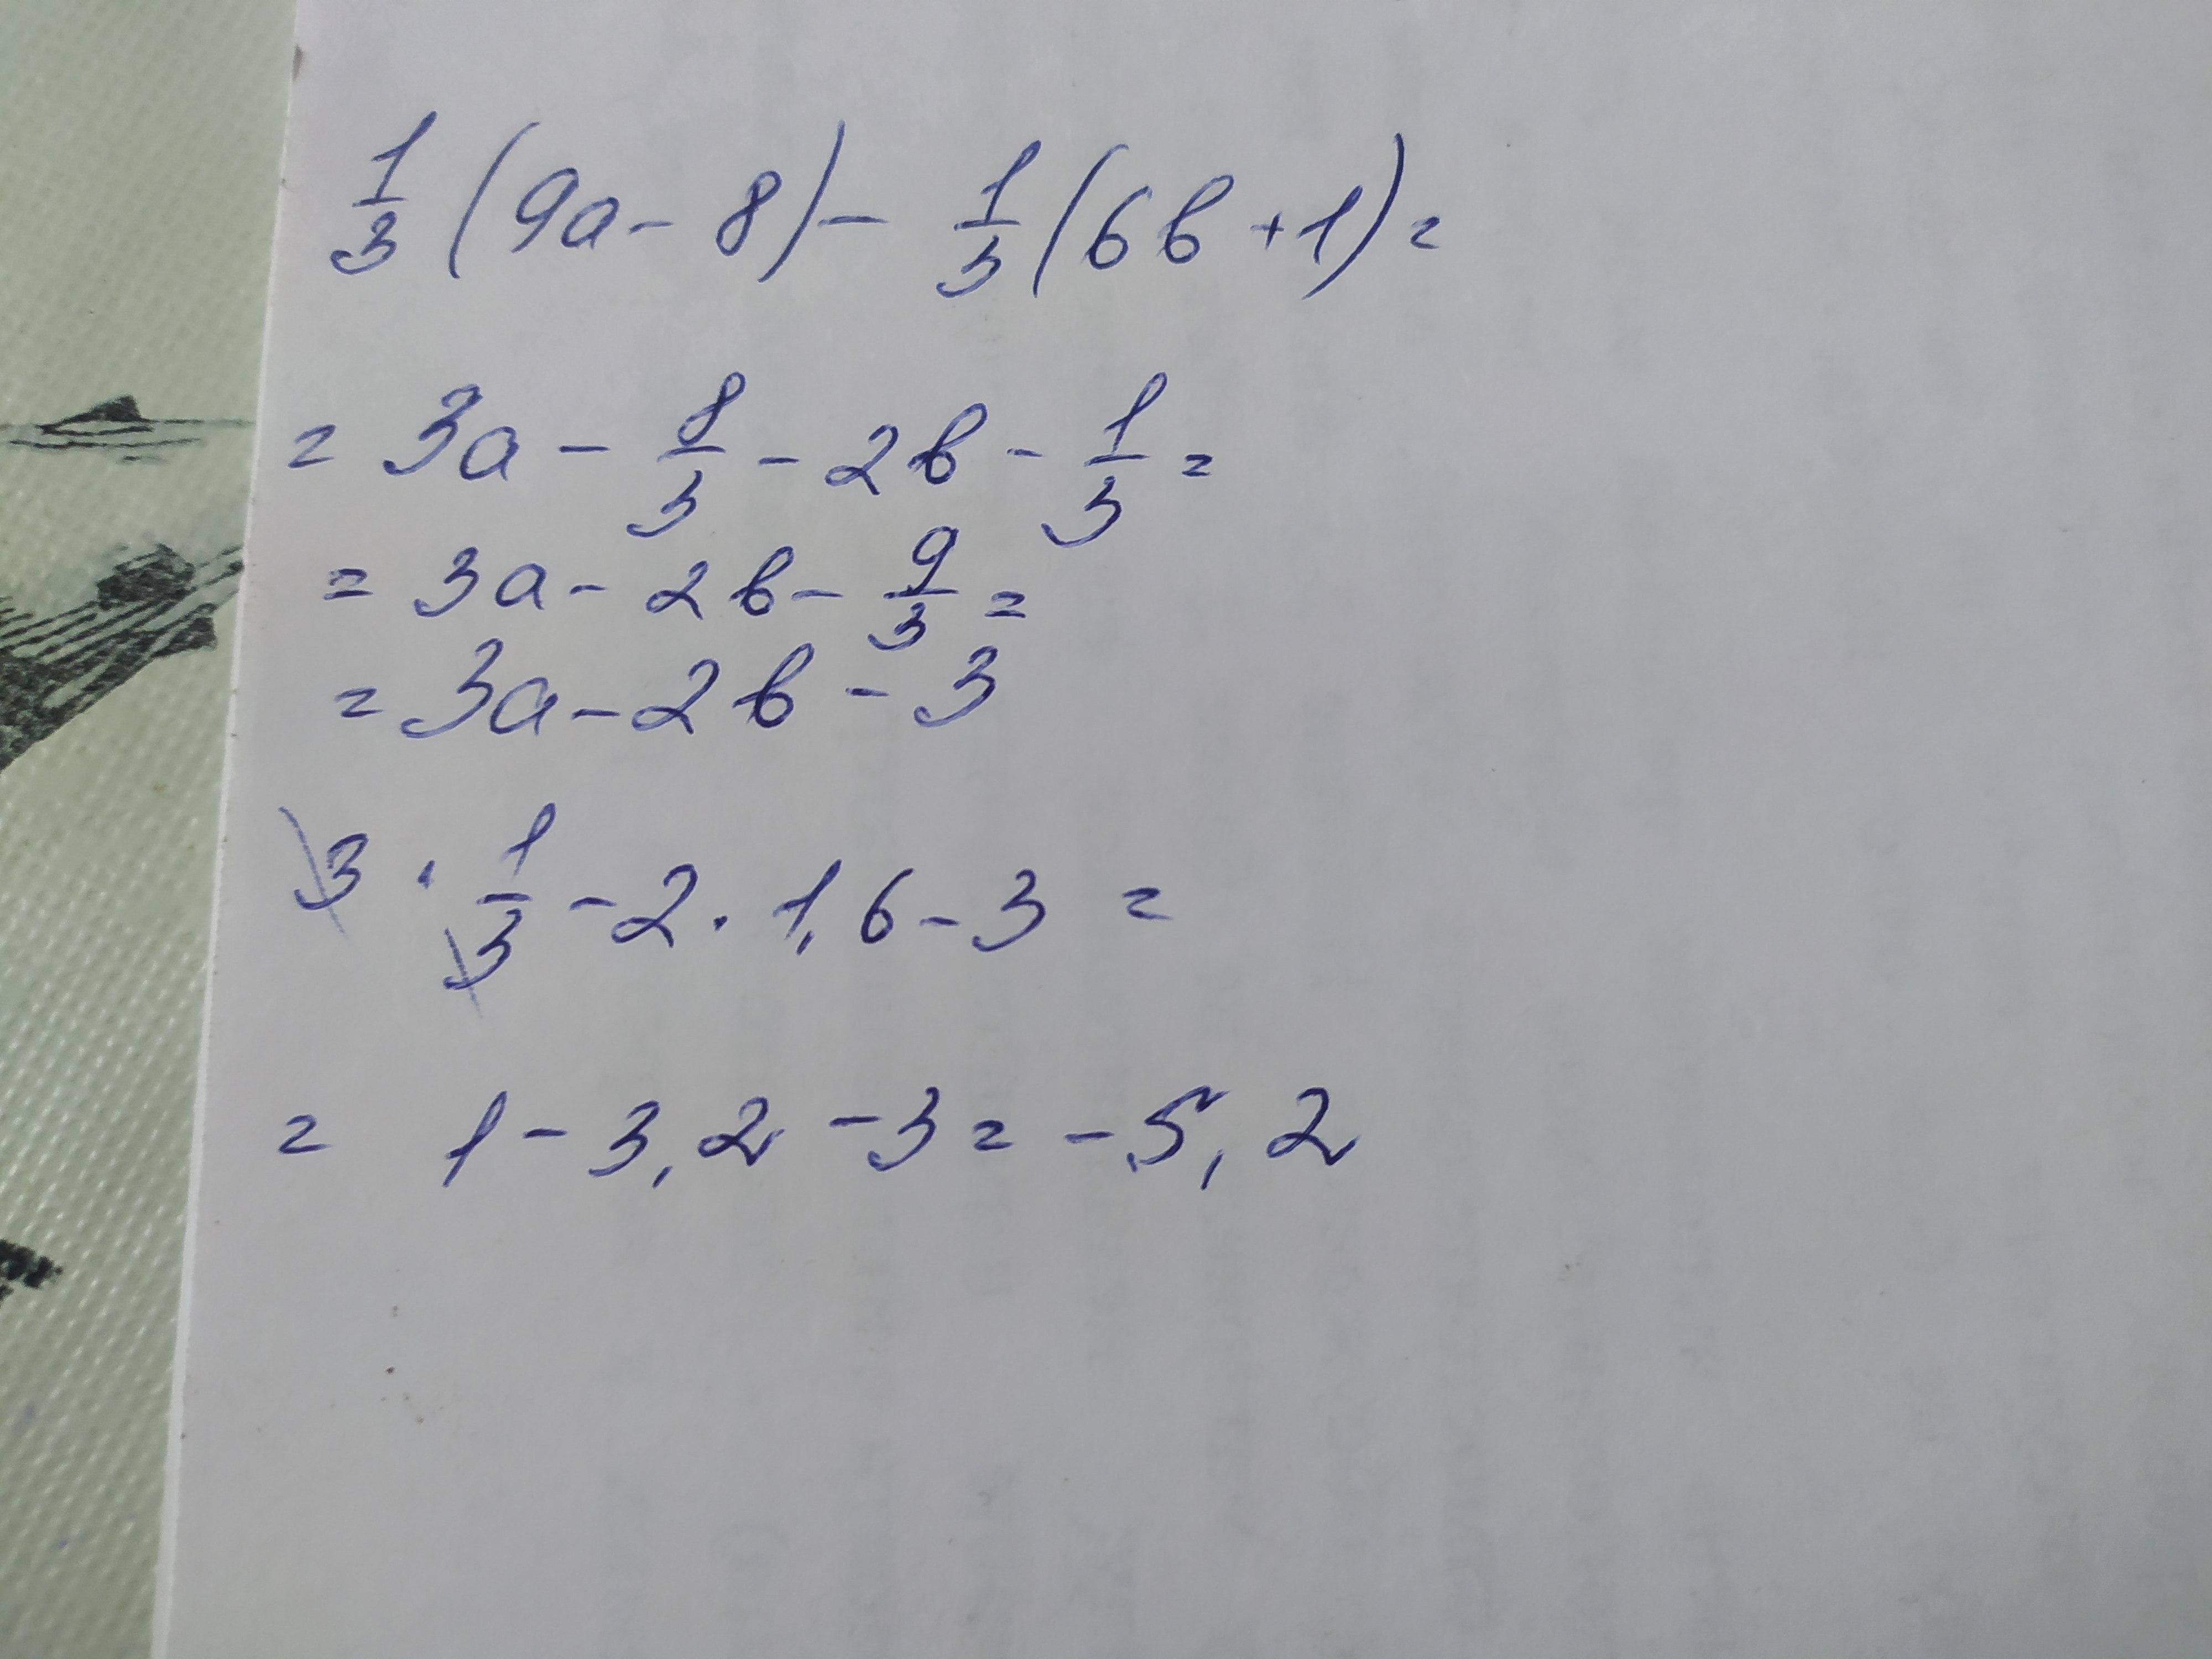 1/3 (9a - 8) - 1/3 (6b + 1) =
= 3a - 8/3 - 2b - 1/3 =
= 3a - 2b - 9/3 =
= 3a - 2b - 3
3 · 1/3 - 2 · 1,6 - 3 =
= 1 - 3,2 - 3 = - 5,2